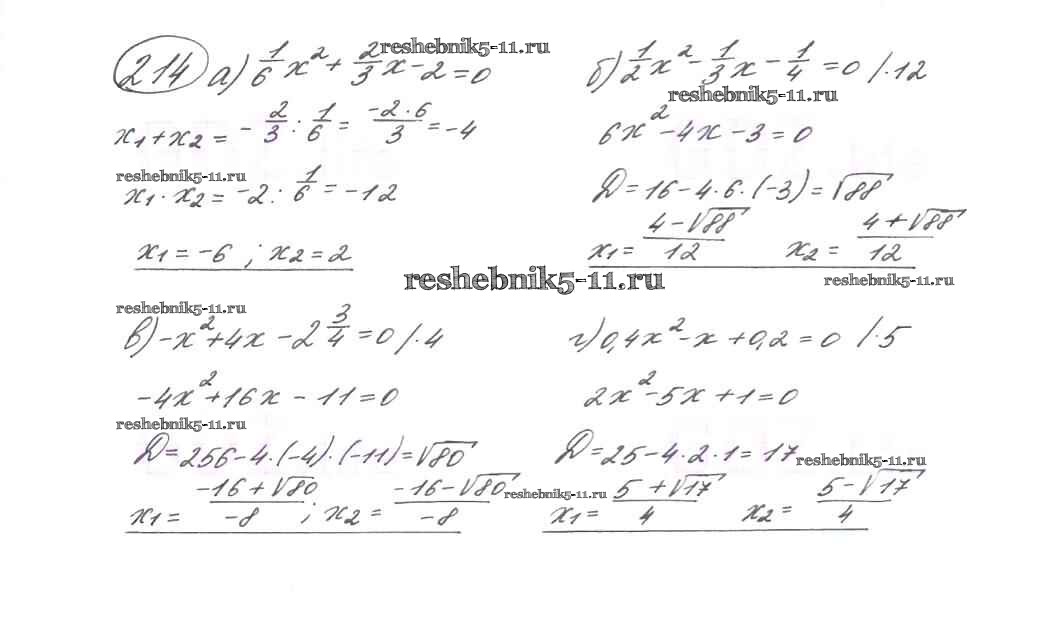 214 а) 1/6 x² + 2/3 x - 2 = 0
reshebnik5-11.ru
x₁ + x₂ = - 2/3 : 1/6 = -2·6/3 = -4
reshebnik5-11.ru
x₁ · x₂ = -2 : 1/6 = -12
x₁ = -6 ; x₂ = 2
б) 1/2 x² - 1/3 x - 1/4 = 0 /·12
reshebnik5-11.ru
6x² - 4x - 3 = 0
D = 16 - 4·6·(-3) = √88
x₁ = 4-√88/12 x₂ = 4+√88/12
reshebnik5-11.ru
reshebnik5-11.ru
reshebnik5-11.ru
в) -x² + 4x - 2 3/4 = 0 /·4
-4x² + 16x - 11 = 0
reshebnik5-11.ru
D = 256 - 4·(-4)·(-11) = √80
x₁ = -16+√80/-8 ; x₂ = -16-√80/-8
reshebnik5-11.ru
г) 0,4x² - x + 0,2 = 0 /·5
2x² - 5x + 1 = 0
D = 25 - 4·2·1 = 17
reshebnik5-11.ru
x₁ = 5+√17/4 x₂ = 5-√17/4